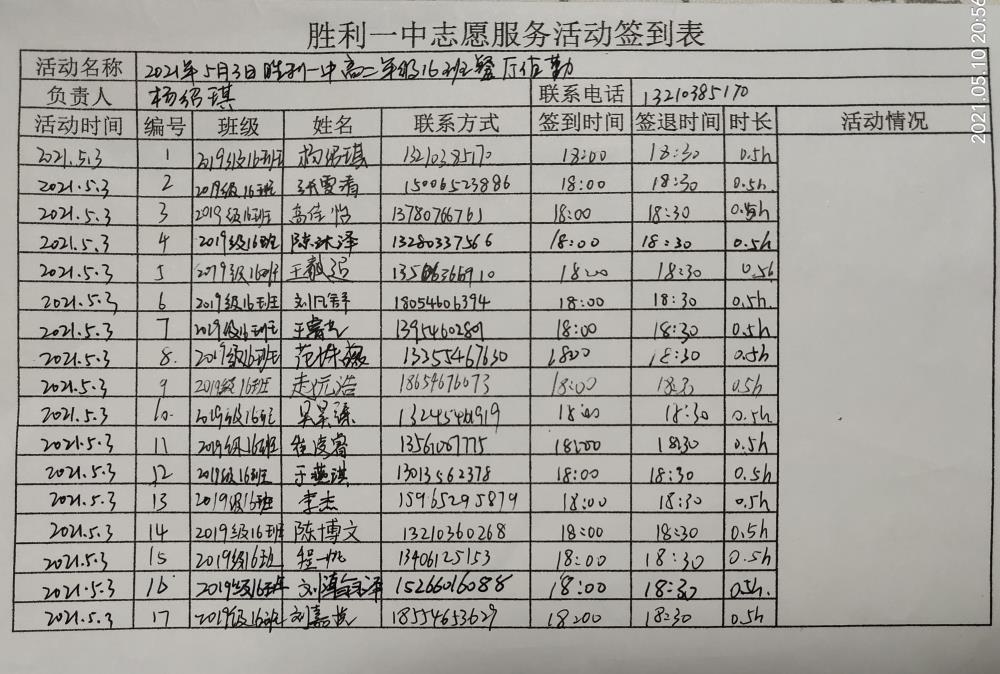 2021.05.10 20:56
胜利一中志愿服务活动签到表
活动名称 2021年5月3日胜利一中高二年级16班餐厅值勤
负责人 杨绍琪 联系电话 13210385170
活动时间 编号 班级 姓名 联系方式 签到时间 签退时间 时长 活动情况
2021.5.3 1 2019级16班 杨绍琪 13210385170 18:00 18:30 0.5h
2021.5.3 2 2019级16班 15006523886 18:00 18:30 0.5h
2021.5.3 3 2019级16班 高佳怡 13780766761 18:00 18:30 0.5h
2021.5.3 4 2019级16班 13280337566 18:00 18:30 0.5h
2021.5.3 5 2019级16班 18:00 18:30 0.5h
2021.5.3 6 2019级16班 18054606394 18:00 18:30 0.5h
2021.5.3 7 2019级16班 13954602801 18:00 18:30 0.5h
2021.5.3 8. 2019级16班 13355467630 1800 18:30 0.5h
2021.5.3 9 2019级16班 18654676073 18:00 18:30 0.5h
2021.5.3 10. 2019级16班 18:00 18:30 0.5h
2021.5.3 11 2019级16班 18:00 18:30 0.5h
2021.5.3 12 2019级16班 于燕琪 13013562378 18:00 18:30 0.5h
2021.5.3 13 2019级16班 李杰 15965295879 18:00 18:30 0.5h
2021.5.3 14 2019级16班 陈博文 13210360268 18:00 18:30 0.5h
2021.5.3 15 2019级16班 13406125153 18:00 18:30 0.5h
2021.5.3 16 2019级16班 15266016088 18:00 18:30 0.5h.
2021.5.3 17 2019级16班 18554653629 18:00 18:30 0.5h